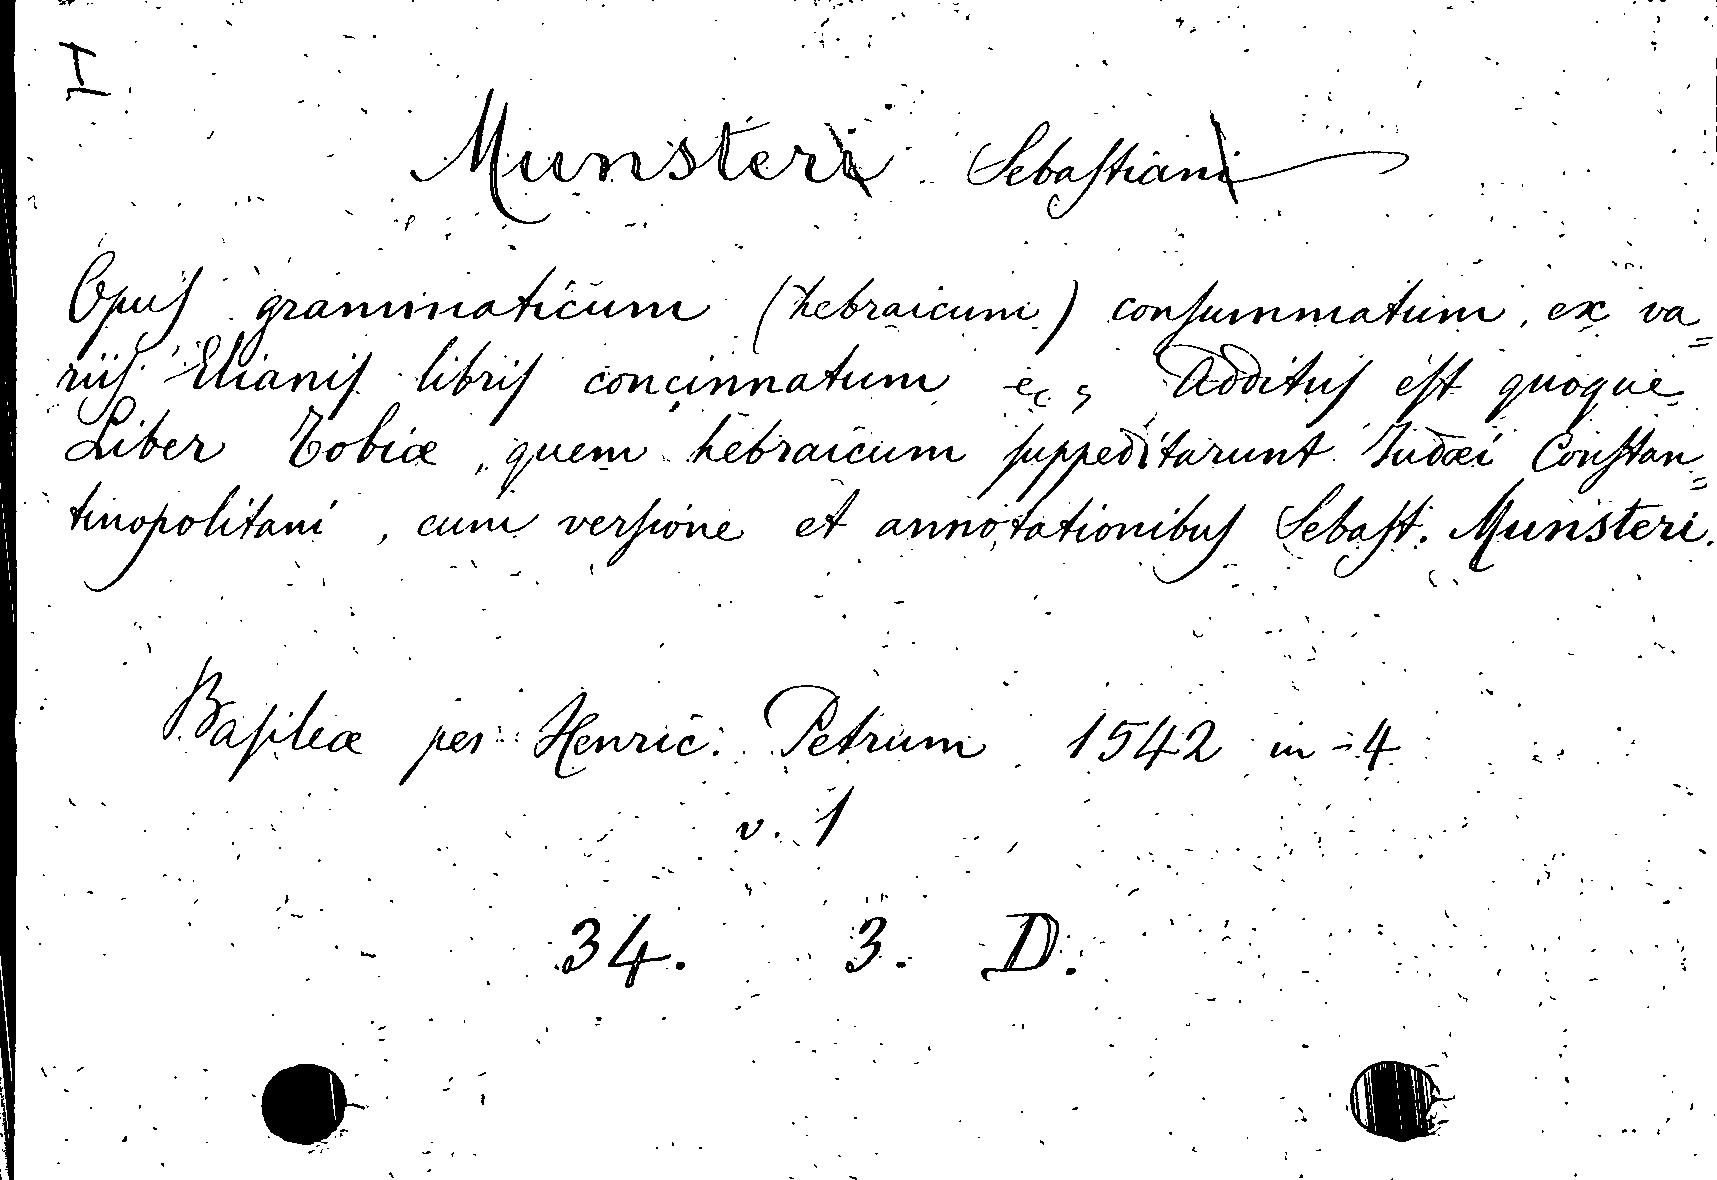 I
Munsteri Sebastiani
Opus grammaticum (hebraicum) consummatum, ex va=
riis Elianis libris concinnatum ec, Additus est quoque
Liber Tobiæ, quem hebraicum suppeditarunt Judæi Constan=
tinopolitani, cum versione et annotationibus Sebast. Munsteri.
Basileæ per Henric. Petrum 1542 in-4
v. 1
34. 3. D.